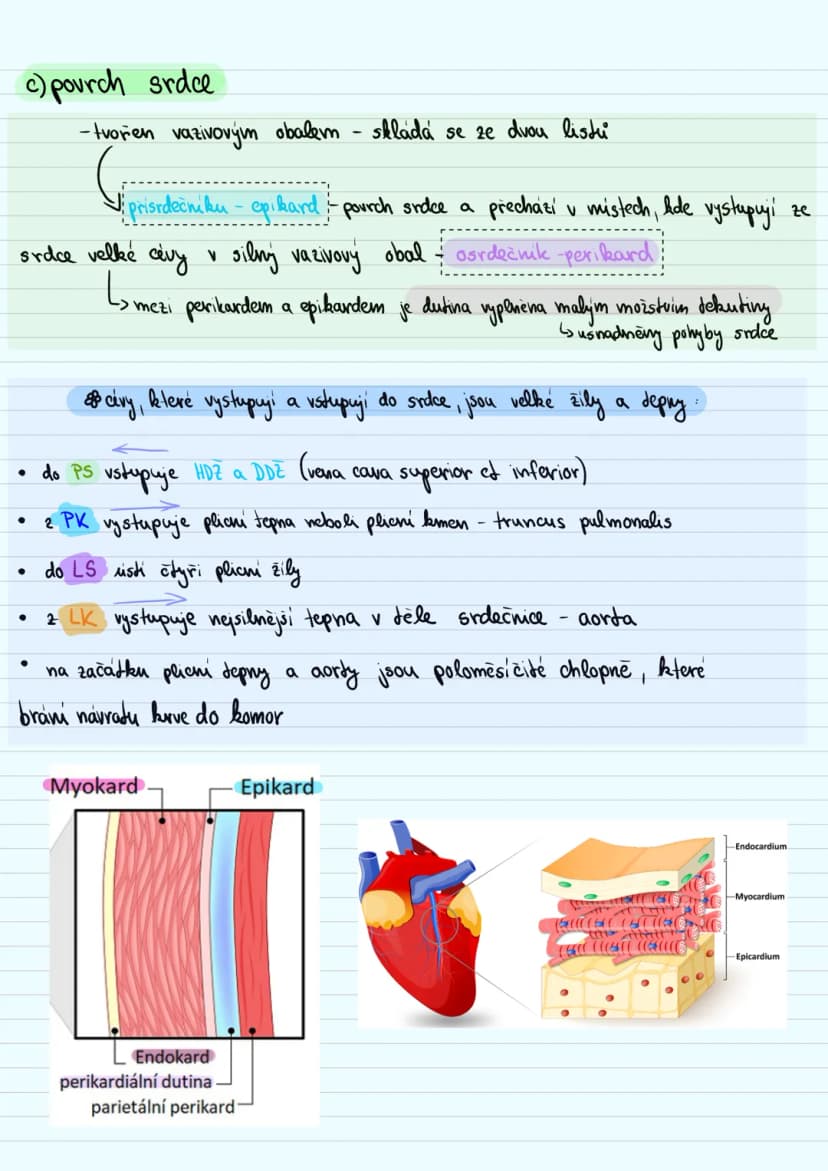 c) povrch srdce
- tvořen vazivovým obalem - skládá se ze dvou listů
přísrdečníku - epikard - povrch srdce a přechází v místech, kde vystupují ze
srdce velké cévy v silný vazivový obal - osrdečník - perikard
↳ mezi perikardem a epikardem je dutina vyplněna malým množstvím tekutiny
↳ usnadněny pohyby srdce
* cévy, které vystupují a vstupují do srdce, jsou velké žíly a tepny:
• do PS vstupuje HDŽ a DDŽ (vena cava superior et inferior)
• z PK vystupuje plicní tepna neboli plicní kmen - truncus pulmonalis
• do LS ústí čtyři plicní žíly
• z LK vystupuje nejsilnější tepna v těle srdečnice - aorta
• na začátku plicní tepny a aorty jsou poloměsíčité chlopně, které
brání návratu krve do komor
Myokard Epikard
Endokard
perikardiální dutina
parietální perikard
Endocardium
Myocardium
Epicardium